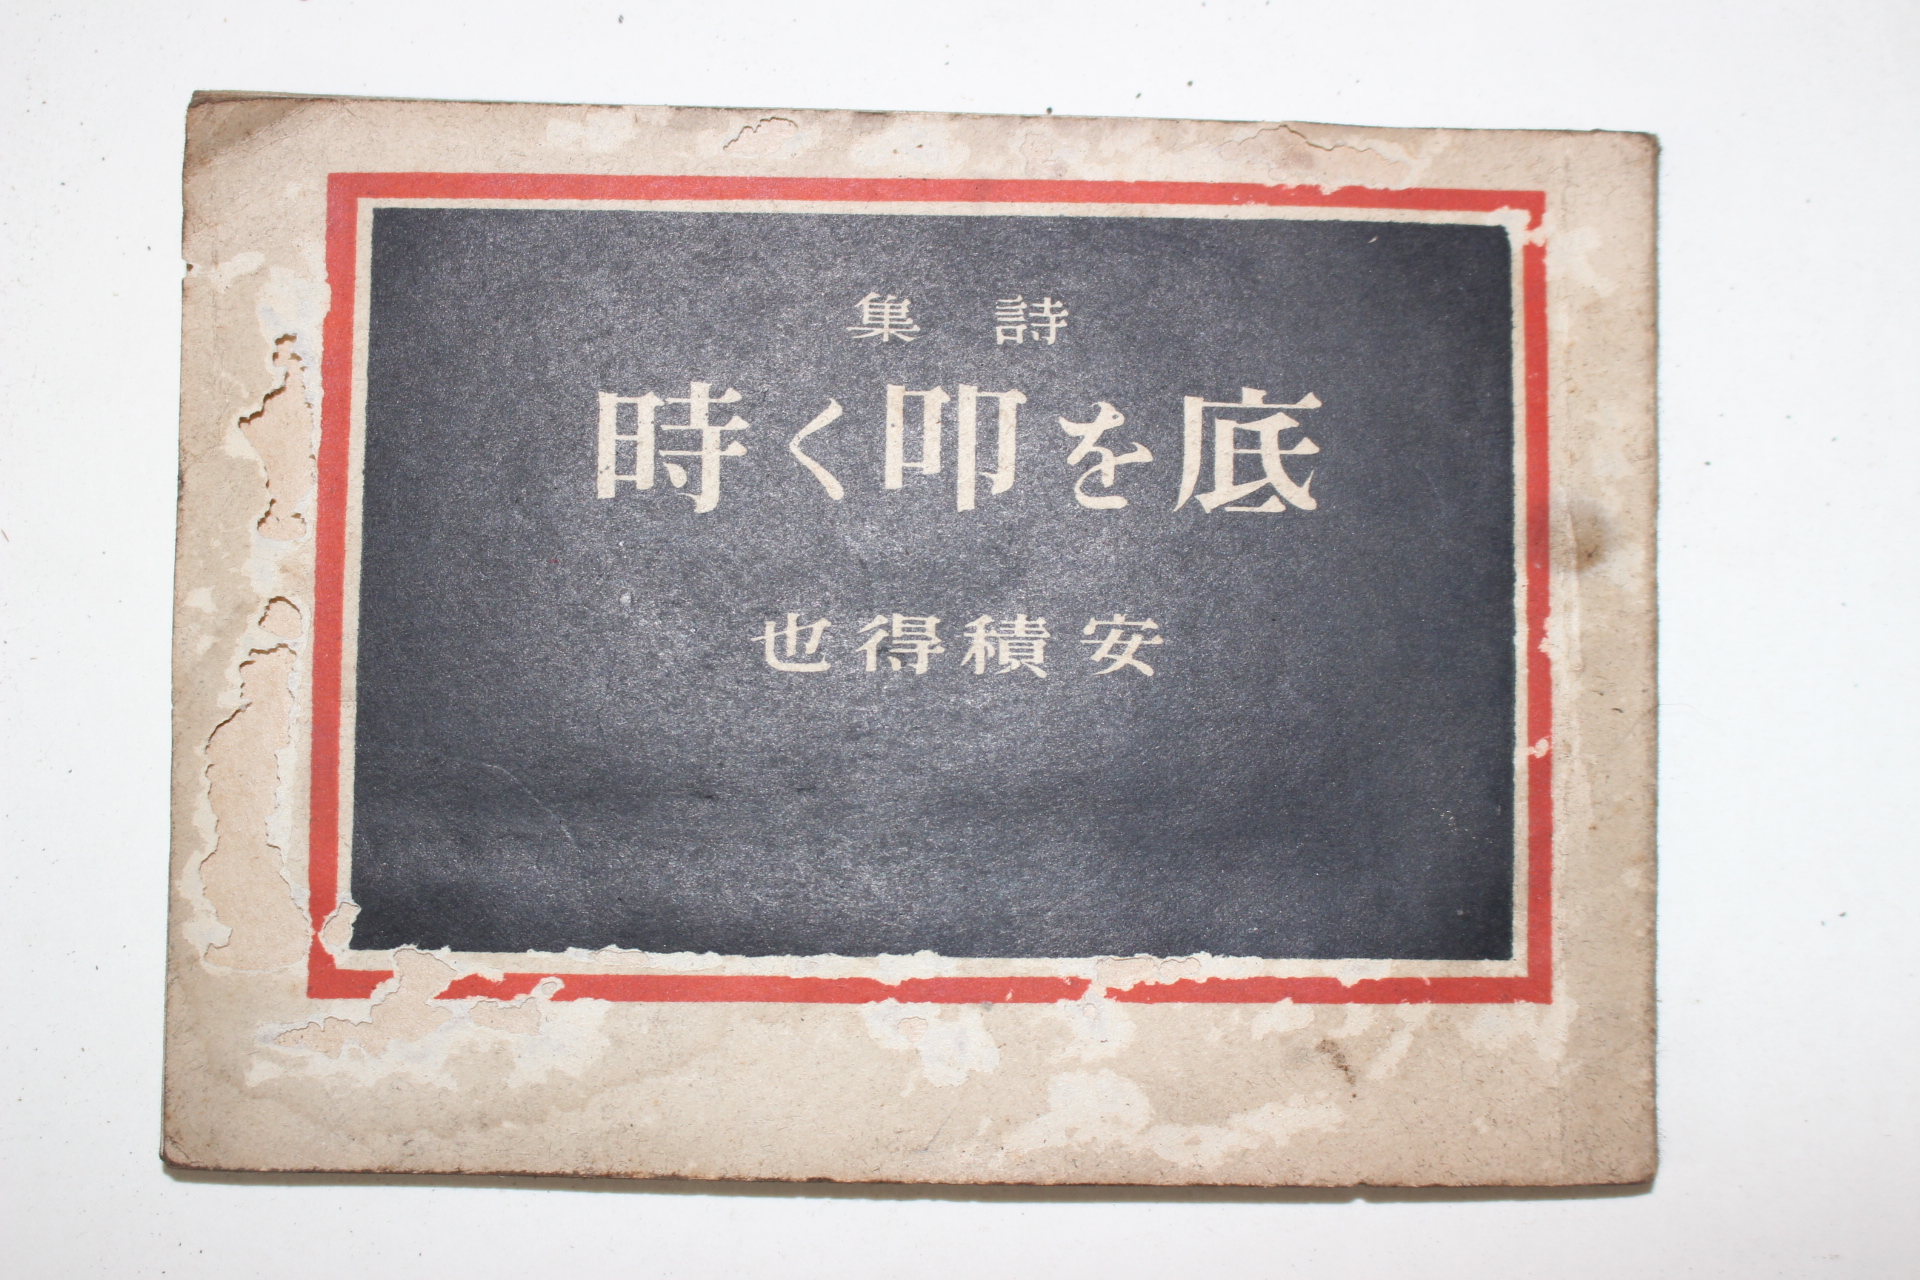 詩集
底を叩く時
安積得也